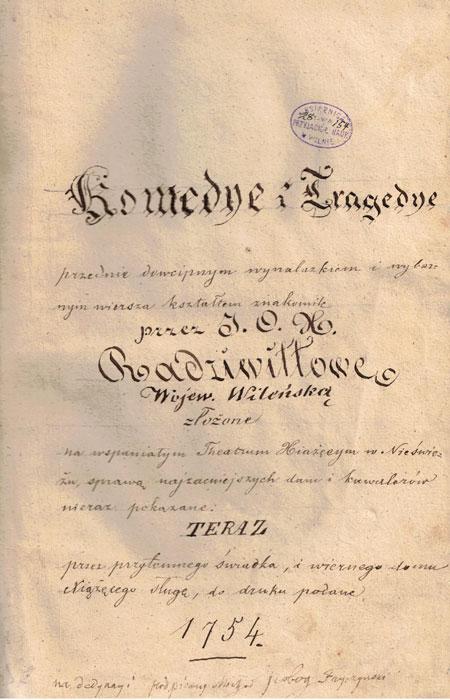 PRZYJACIÓŁ NAUK
W WILNIE
Komedye i Tragedye
przednie dowcipnym wynalazkiem i wybor-
nym wiersza kształtem znakomite
przez J. O. X.
Radziwiłłowę
Wojew. Wileńską
złożone
na wspaniałym Theatrum Xiążęcym w Nieświe-
żu, sprawą najzacniejszych dam i kawalerów
nieraz pokazane:
TERAZ
przez przytomnego świadka, i wiernego domu
Xiążęcego sługę, do druku podane
1754.
na dedykacyi podpisany